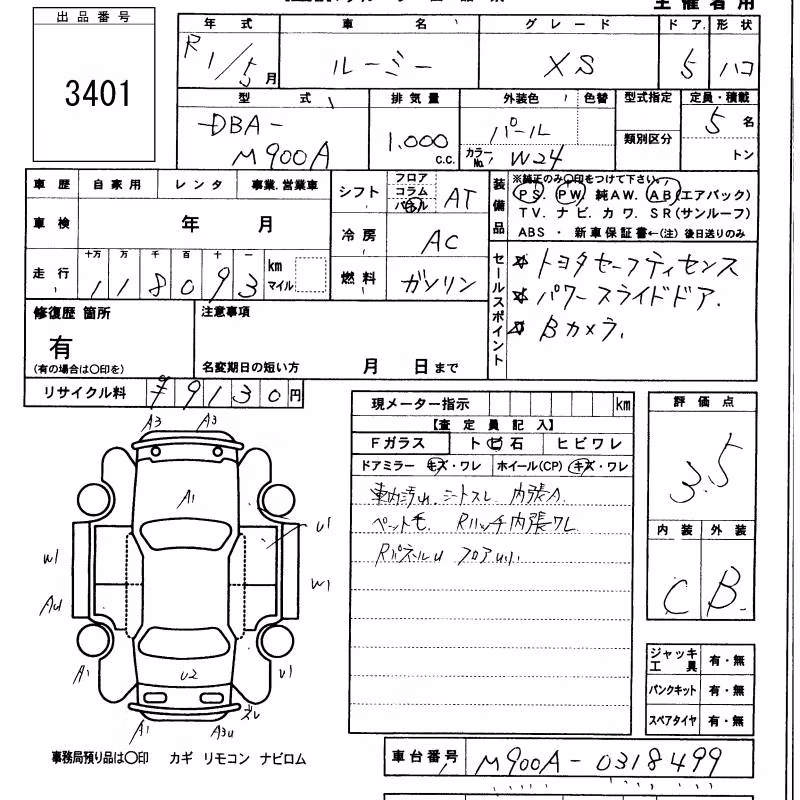 主催者用
出品番号
3401
年式 車名 グレード ドア 形状
R 1/5月 ルーミー XS 5 ハコ
型式 排気量 外装色 色替 型式指定 定員・積載
DBA- 1.000 C.C. パール 類別区分 5名
M900A カラーNo. W24 トン
車歴 自家用 レンタ 事業.営業車
車検 年 月
走行 十万 万 千 百 十 一 km マイル
1 1 8 0 9 3
シフト フロア コラム パネル AT
冷房 AC
燃料 ガソリン
装備品 ※純正のみ○印をつけて下さい。
PS. PW. 純AW. AB(エアバック)
TV. ナビ. カワ. SR(サンルーフ)
ABS ・ 新車保証書←(注) 後日送りのみ
セールスポイント
☆ トヨタセーフティセンス
☆ パワースライドドア.
☆ Bカメラ.
修復歴 箇所 注意事項
有
(有の場合は○印を) 名変期日の短い方 月 日まで
リサイクル料 7 9 1 3 0 円
現メーター指示 km
【査定員記入】
Fガラス トビ石 ヒビワレ
ドアミラー キズ・ワレ ホイール(CP) キズ・ワレ
車内汚れ. シートスレ. 内張A.
ペット毛. Rハッチ内張ワレ
RパネルU フロアU小
評価点
3.5
内装 外装
C B.
ジャッキ工具 有・無
パンクキット 有・無
スペアタイヤ 有・無
A3 A3
A1
U1
W1 W1
AU
A1 U2 U1
スレ
A1 A3U
事務局預り品は○印 カギ リモコン ナビロム
車台番号 M900A-0318499